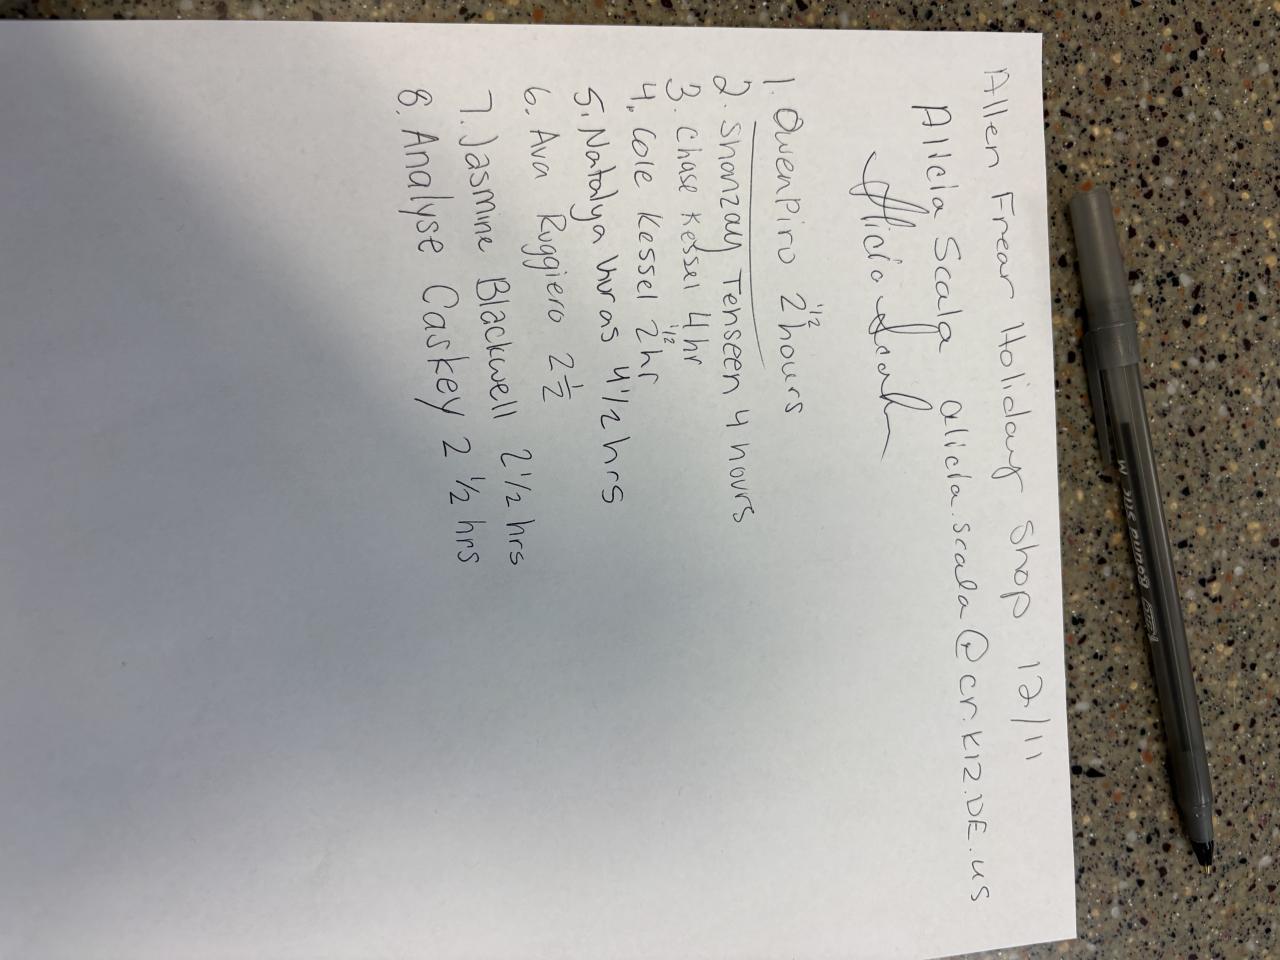 Allen Frear Holiday Shop 12/11
Alicia Scala alicia.scala@cr.K12.DE.us
Alicia Scala
1. Owen Piro 2 1/2 hours
2. Shanzay Tenseen 4 hours
3. Chase Kessel 4 hr
4. Cole Kessel 2 1/2 hr
5. Natalya 4 1/2 hrs
6. Ava Ruggiero 2 1/2
7. Jasmine Blackwell 2 1/2 hrs
8. Analyse Caskey 2 1/2 hrs
BIC Round Stic M